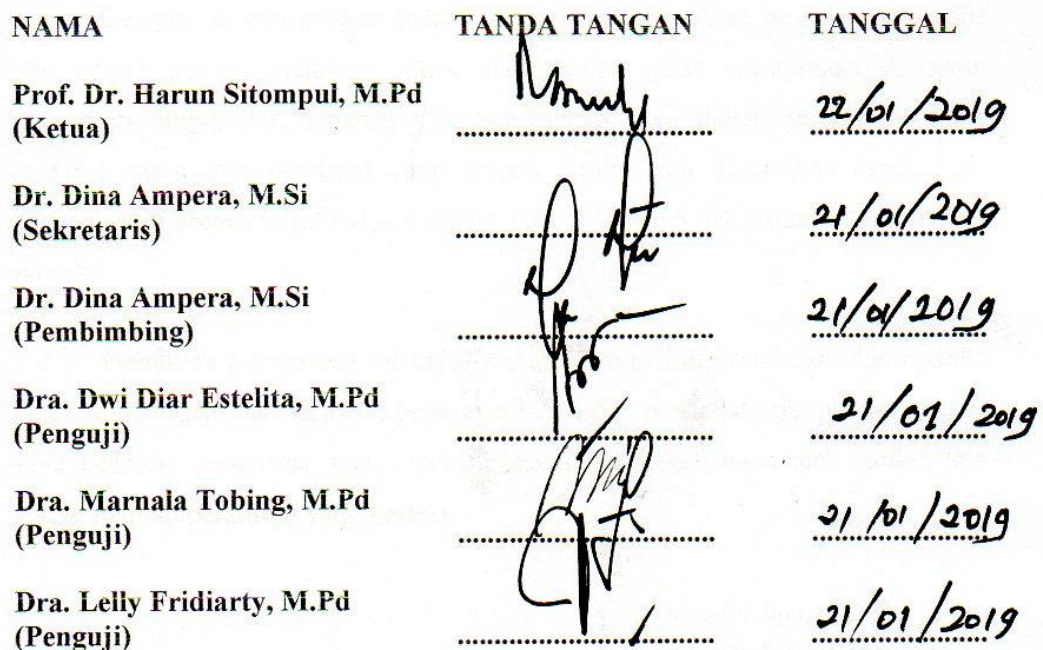 NAMA TANDA TANGAN TANGGAL
Prof. Dr. Harun Sitompul, M.Pd
(Ketua) 22/01/2019
Dr. Dina Ampera, M.Si
(Sekretaris) 21/01/2019
Dr. Dina Ampera, M.Si
(Pembimbing) 21/01/2019
Dra. Dwi Diar Estelita, M.Pd
(Penguji) 21/01/2019
Dra. Marnala Tobing, M.Pd
(Penguji) 21/01/2019
Dra. Lelly Fridiarty, M.Pd
(Penguji) 21/01/2019